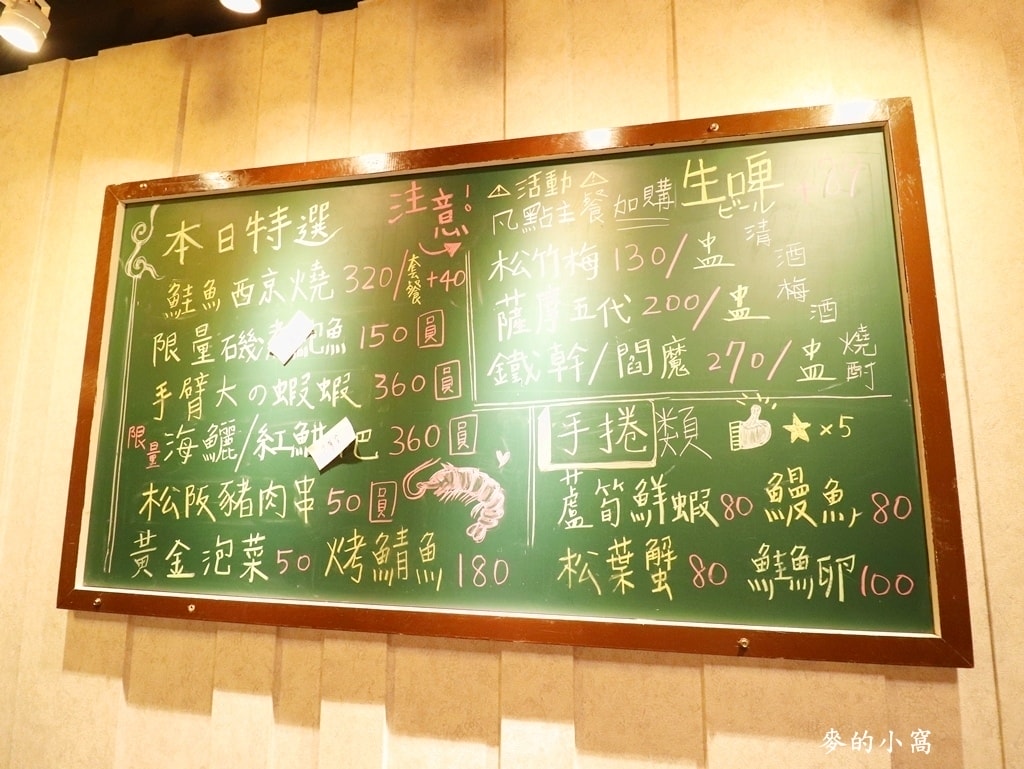 本日特選
注意!
鮭魚西京燒 320/套餐+40
限量磯煮鮑魚 150圓
手臂大の蝦蝦 360圓
限量 海鱺/紅魽 吧 360圓
松阪豬肉串 50圓
黃金泡菜 50 烤鯖魚 180
△活動△
凡點主餐加購 生啤 ビール
清酒 梅酒
松竹梅 130/盅
薩摩五代 200/盅
鐵幹/閻魔 270/盅 燒酎
手捲類 ★×5
蘆筍鮮蝦 80 鰻魚 80
松葉蟹 80 鮭魚卵 100
麥的小窩